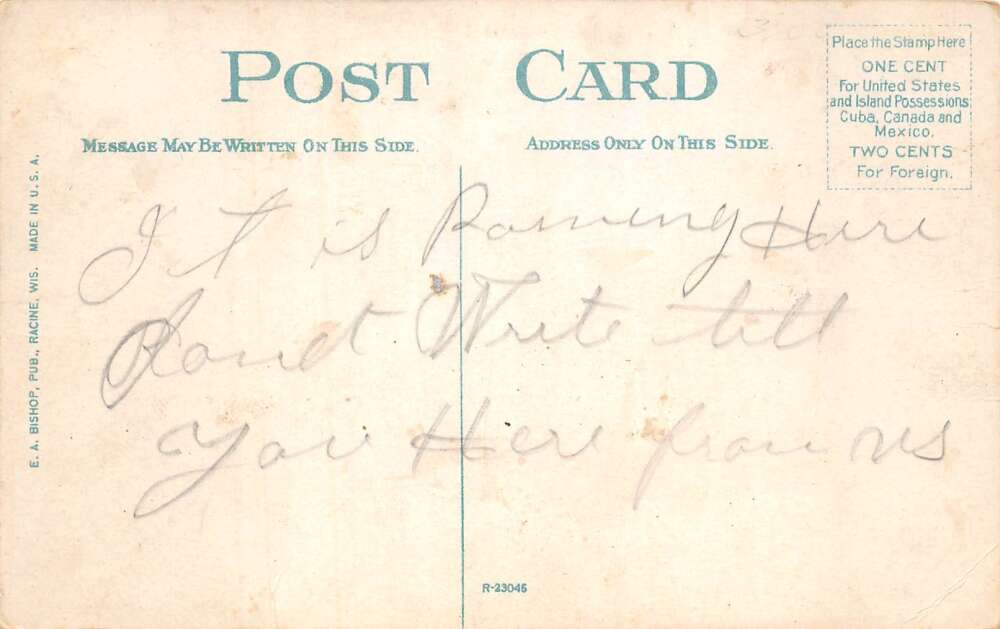 POST CARD
MESSAGE MAY BE WRITTEN ON THIS SIDE.
ADDRESS ONLY ON THIS SIDE.
Place the Stamp Here
ONE CENT
For United States
and Island Possessions,
Cuba, Canada and
Mexico.
TWO CENTS
For Foreign.
E. A. BISHOP, PUB., RACINE, WIS. MADE IN U. S. A.
It is Raining Here
Write till
you Here from us
R-23045